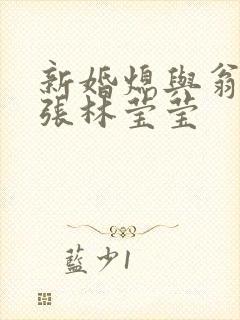 新婚熄與翁
張林莹莹
藍少1